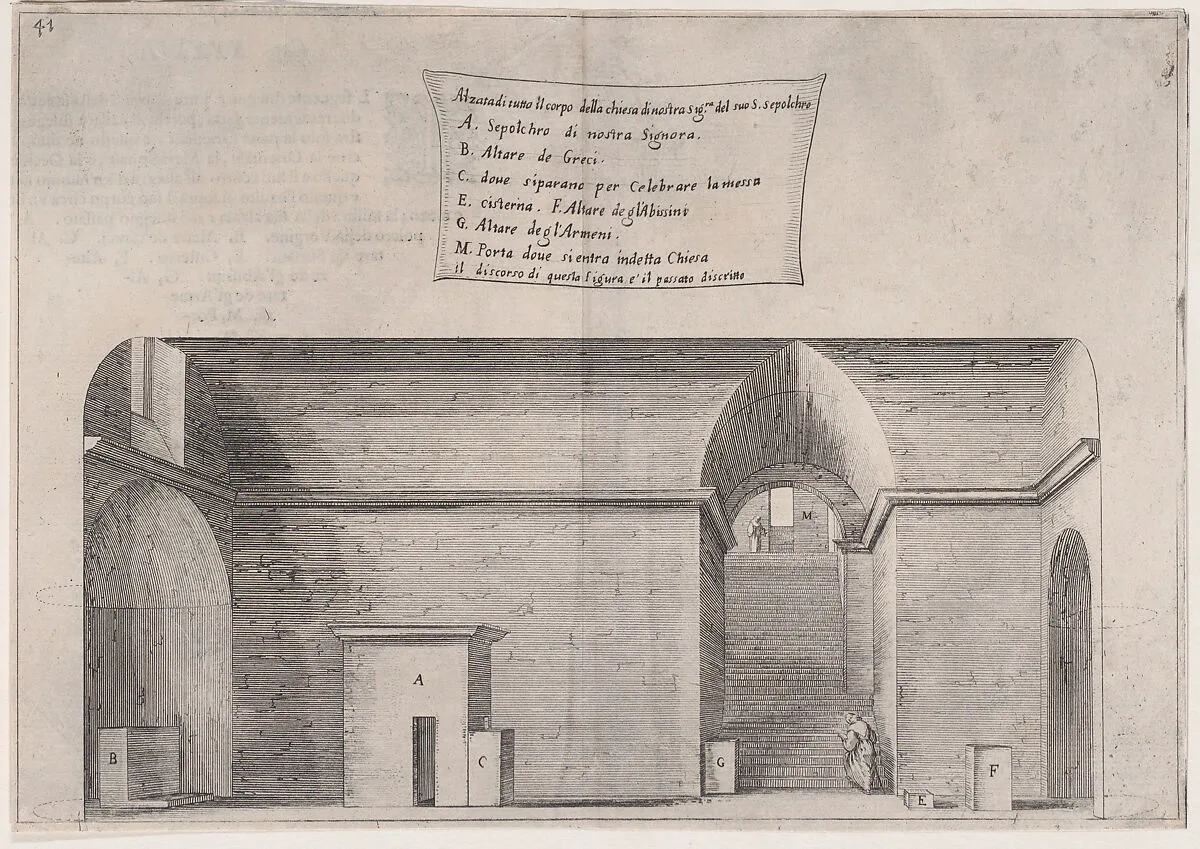 41
Alzata di tutto Il corpo della chiesa di nostra Sig.ra del suo S. sepolchro
A. Sepolchro di nostra Signora.
B. Altare de Greci.
C. doue siparano per Celebrare lamessa
E. cisterna. F. Altare de gl'Abissini
G. Altare de gl'Armeni.
M. Porta doue sientra indetta Chiesa
il discorso di questa figura e' il passato discritto
M
A
B
C
G
E
F